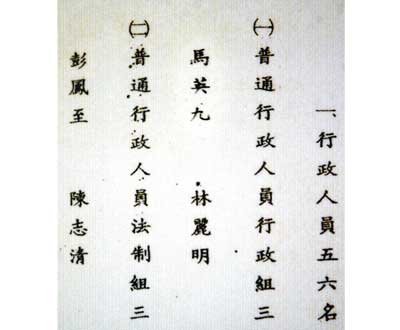 一、行政人員五六名
㈠普通行政人員行政組三
馬英九　林麗明
㈡普通行政人員法制組三
彭鳳至　陳志清